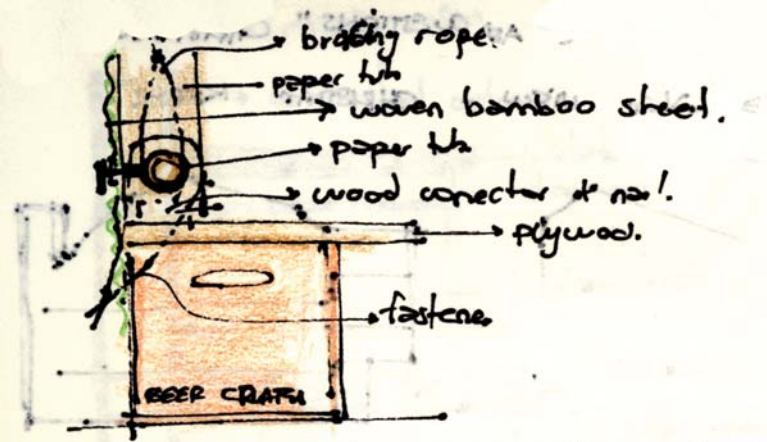 bracing rope.
paper tub
woven bamboo sheet.
paper tub
wood conector + nail.
plywood.
fastene
BEER CRATES